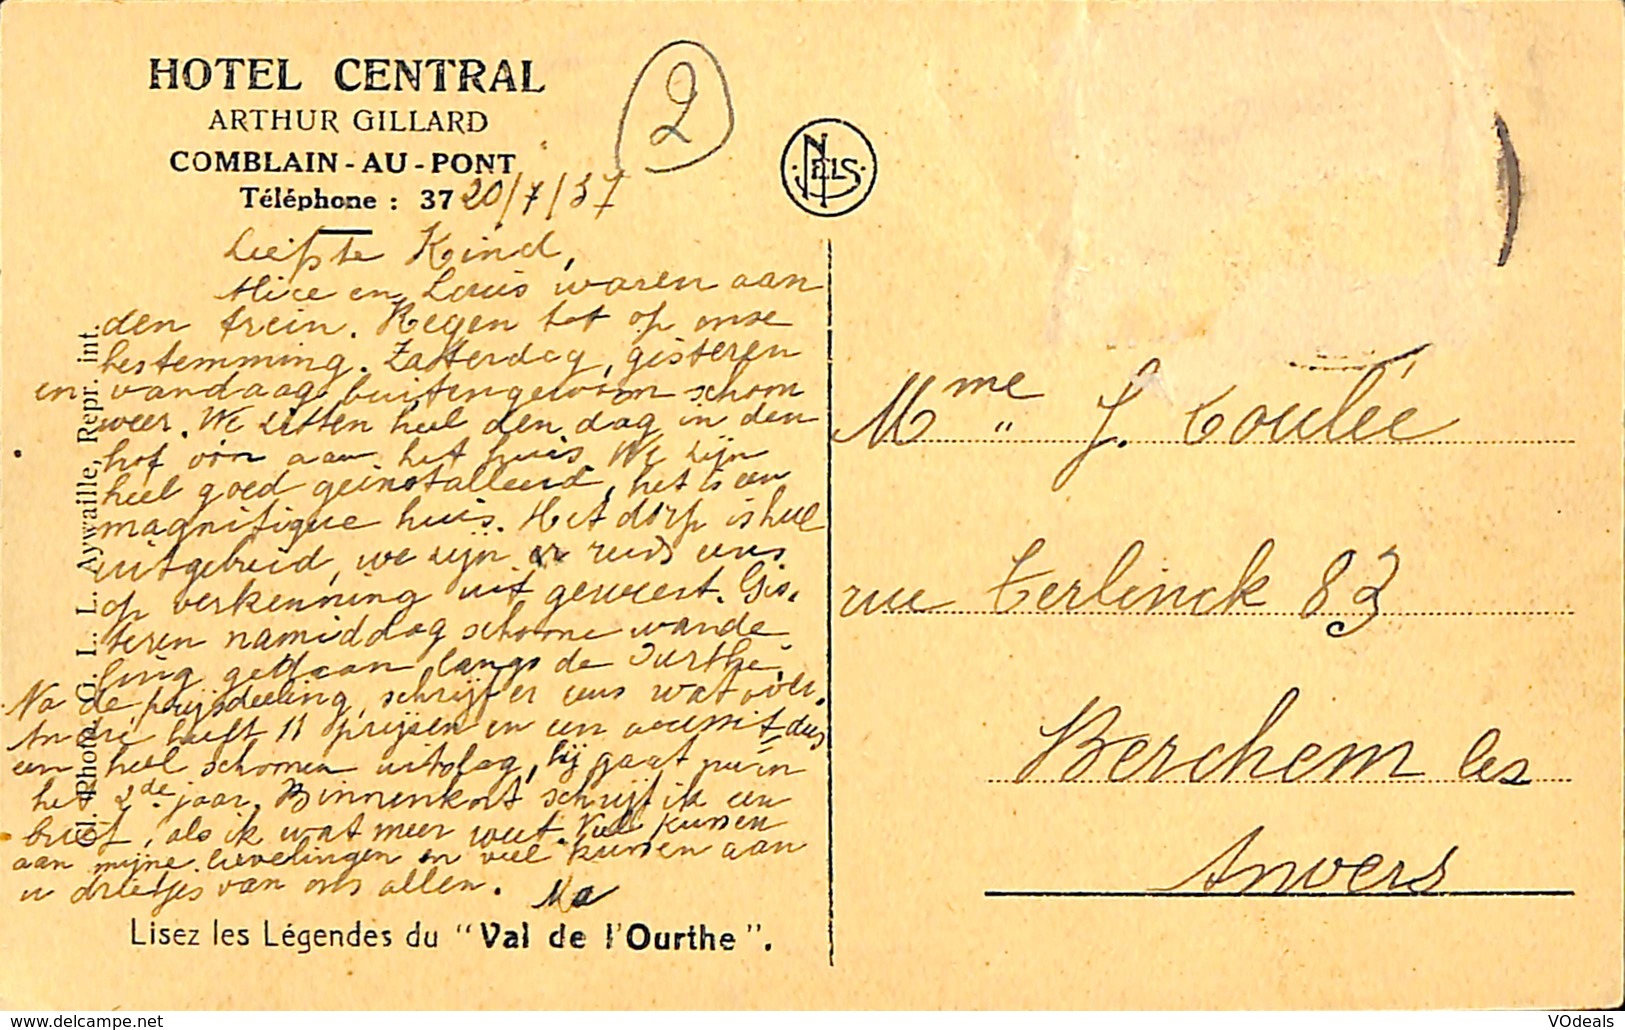 HOTEL CENTRAL
ARTHUR GILLARD
COMBLAIN - AU - PONT
Téléphone : 37
2
20/7/37
NELS
Liefste Kind,
Alice en Louis waren aan
den trein. Regen tot op onze
bestemming. Zatterdag, gisteren
en vandaag buitengewoon schoon
weer. We zitten heel den dag in den
hof van aan het huis. We zijn
heel goed geïnstalleerd, het is een
magnifique huis. Het dorp is heel
uitgebreid, we zijn er reeds eens
op verkenning uit geweest. Gis.
teren namiddag schoone wande
ling gedaan langs de Ourthe.
Na de prijsdeeling, schrijft er eens wat over.
André heeft 11 prijzen en een accessit dus
een heel schonen uitslag, hij gaat nu in
het 2de jaar. Binnenkort schrijf ik een
brief, als ik wat meer weet. Veel kussen
aan mijne lievelingen en veel kussen aan
u drietjes van ons allen. Ma
Cl. Photo. G. L. L. Aywaille, Repr. int.
Lisez les Légendes du "Val de l'Ourthe".
Mme J. Coulée
rue Terlinck 83
Berchem les
Anvers
VOdeals
http://www.delcampe.net